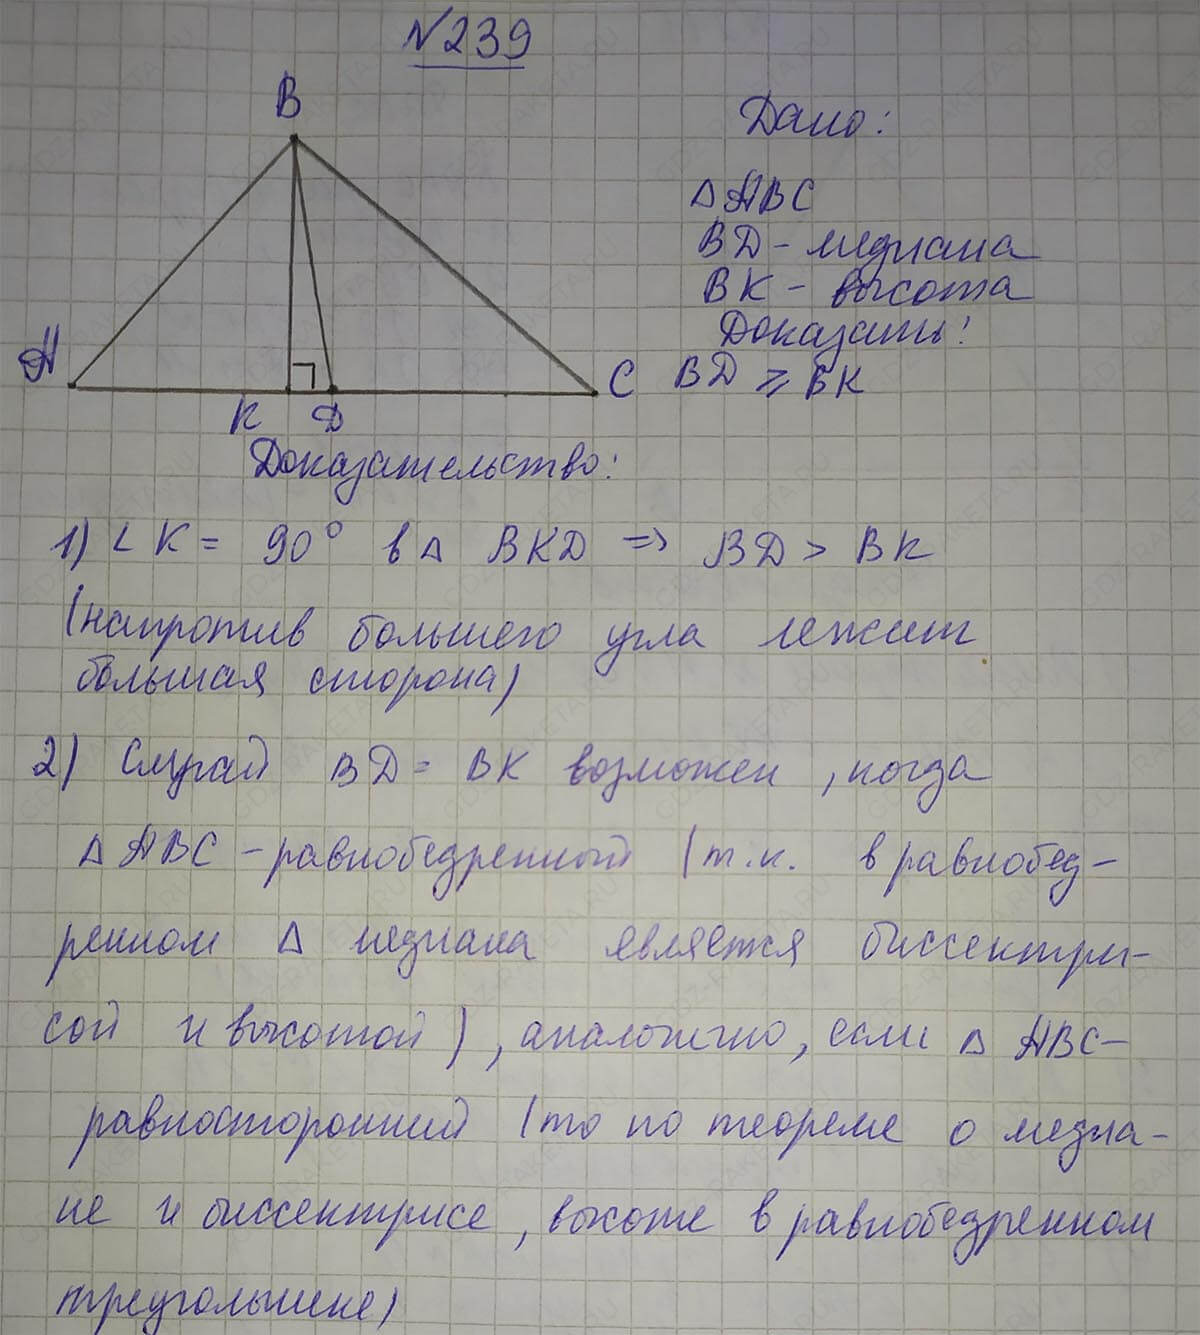 №239
B
Дано:
△ABC
BD - медиана
BK - высота
Доказать:
A
C
BD ⩾ BK
K
D
Доказательство:
1) ∠K = 90° в △ BKD => BD > BK
(напротив большего угла лежит
большая сторона)
2) Случай BD = BK возможен, когда
△ABC - равнобедренный (т.к. в равнобед-
ренном △ медиана является биссектри-
сой и высотой), аналогично, если △ ABC-
равносторонний (то по теореме о медиа-
не и биссектрисе, высоте в равнобедренном
треугольнике)